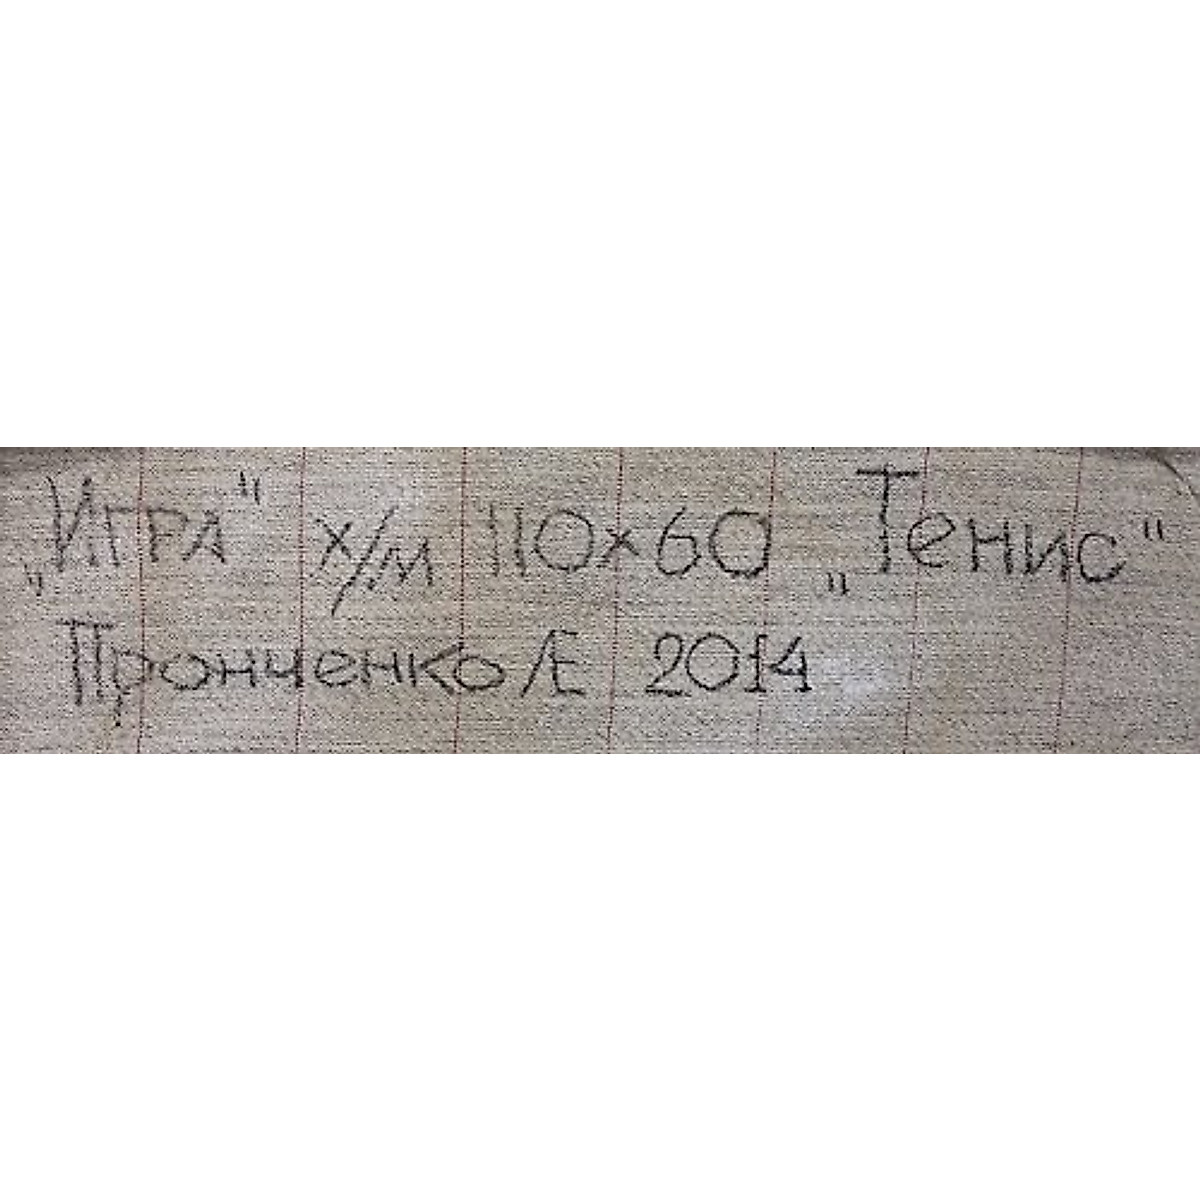 „Игра" х/м 110х60 „Тенис"
Пронченко /Е 2014